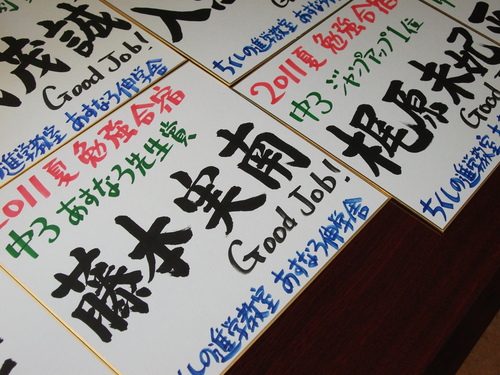 茂誠
Good Job!
進学教室 あすなろ伸学舎
人
ちくしの進学教室
2011夏 勉強合宿
中3 あすなろ先生賞
藤本実南
Good Job!
しの進学教室 あすなろ伸学舎
2011夏 勉強合宿
中3 ジャンプアップ1位
梶原未妃
Good
ちくしの進学教室